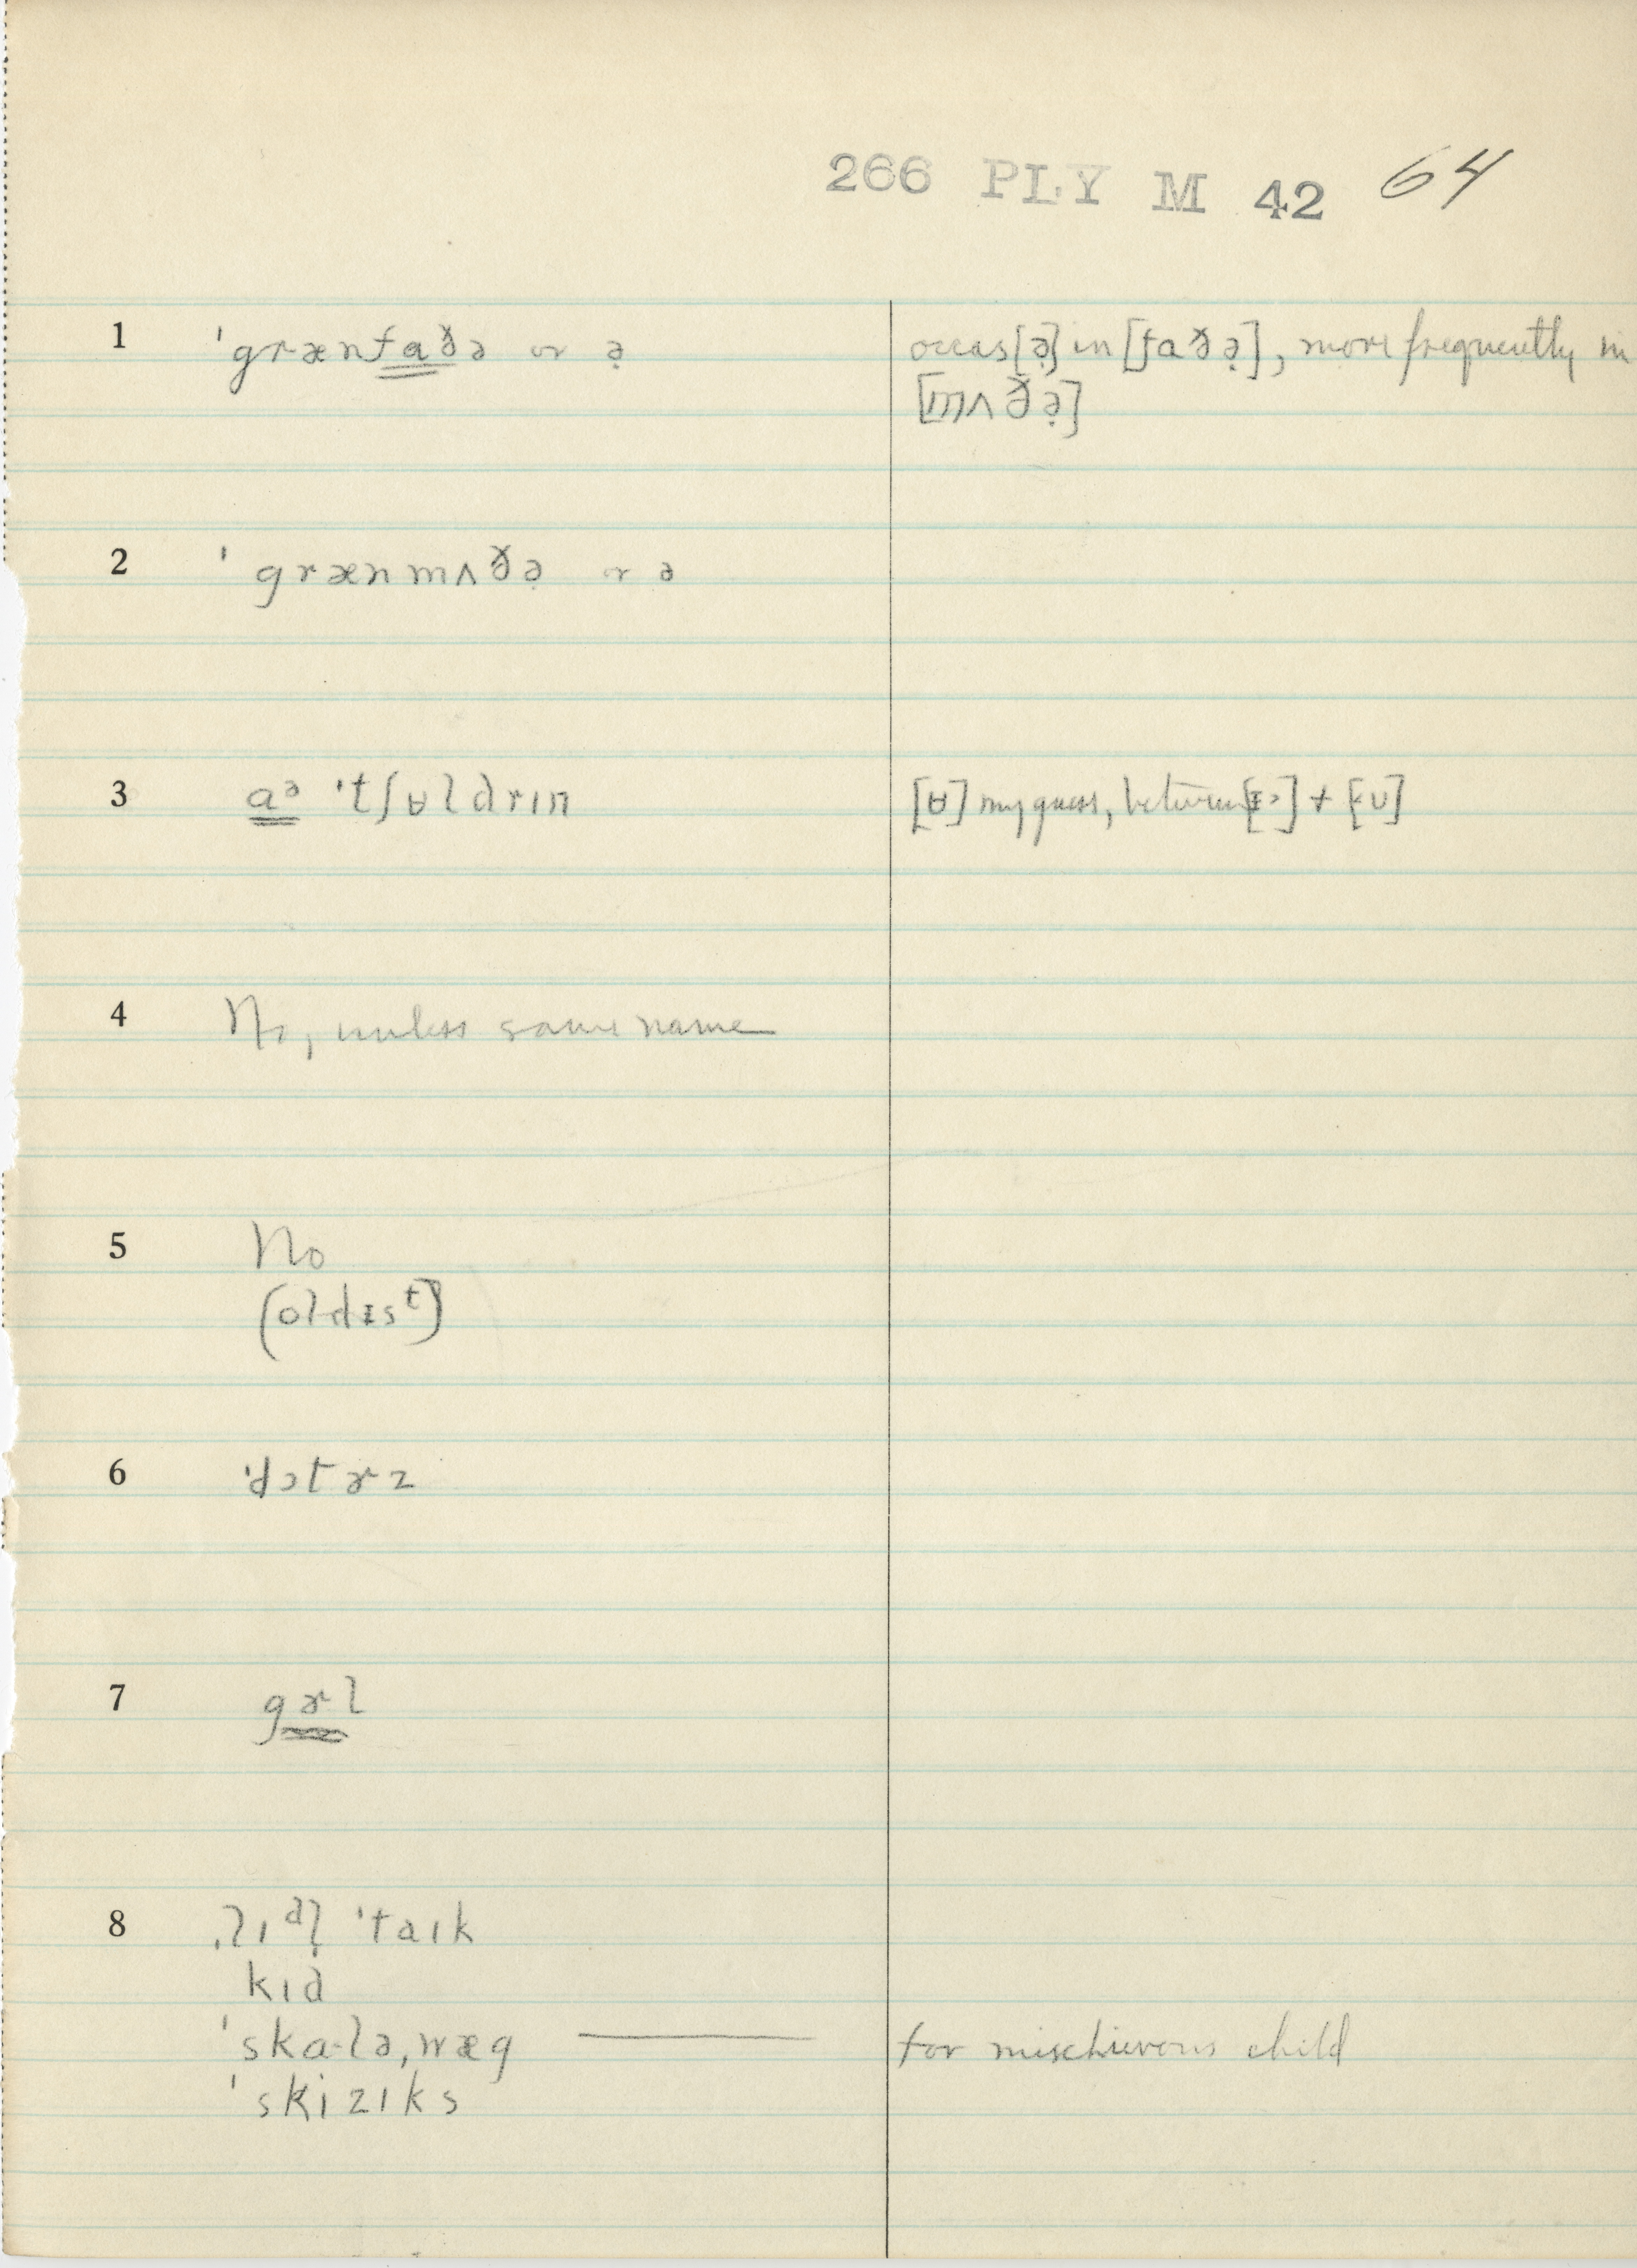 266 PLY M 42 64
1 ˈgrænfaðə or ə̣ occas [ə̣] in [faðə̣], more frequently in
[mʌðə̣]
2 ˈgrænmʌðə̣ or ə
3 aᵊ ˈtʃʉldrɪn [ʉ] my guess, between [ᵻ>] + [<ʊ]
4 No, unless same name
5 No
(oldᵻsᵗ)
6 ˈdɔtɚz
7 gɚl
8 ˌlɪᵈl̩ ˈtaɪk
kɪd
ˈska·ləˌwæg — for mischievous child
ˈskizɪks